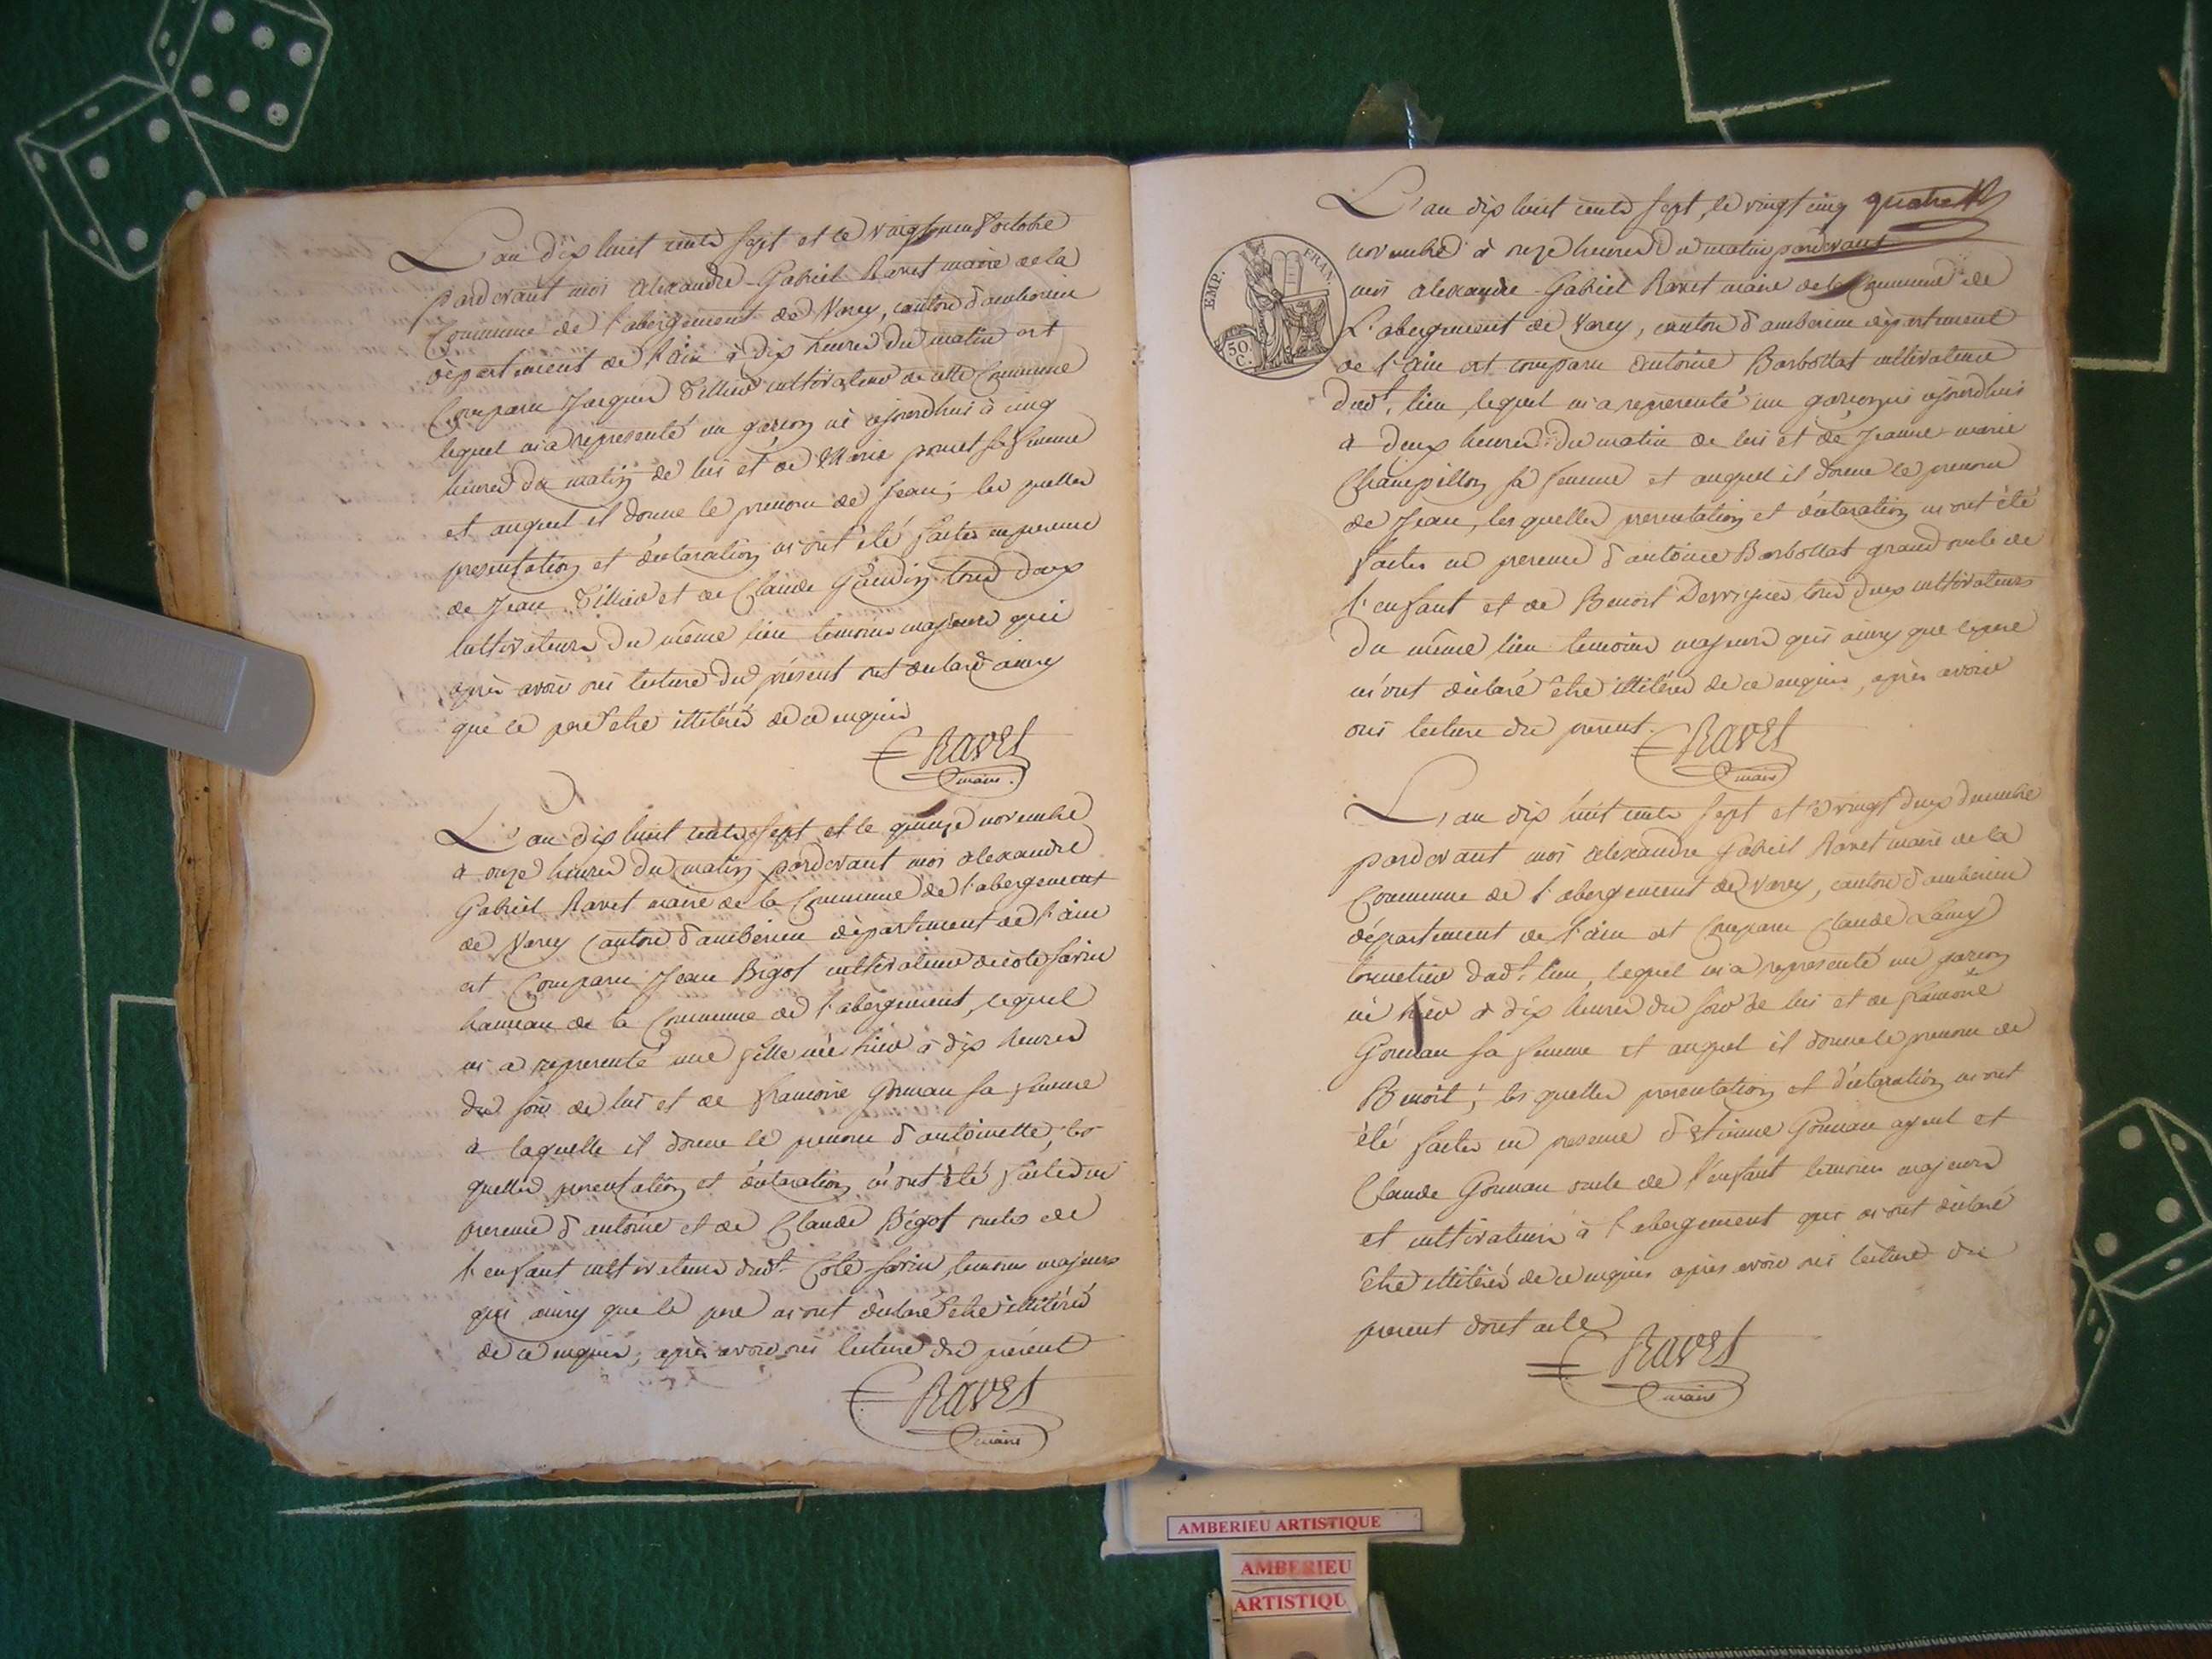 L'an dix huit cents sept et le vingt neuf octobre
pardevant moi alexandre-Gabriel Ravet maire de la
Commune de l'abergement de Varey, canton d'amberieu
département de l'ain à dix heures du matin est
Comparu Jacques Tillier cultivateur de cette Commune
lequel m'a représenté un garçon né ajourdhui à cinq
heures du matin de lui et de Marie ponet sa femme
et auquel il donne le prenom de Jean; les quelles
presentation et déclaration m'ont été faites en presence
de Jean Tillier et de Claude Gaudin tous deux
cultivateurs du même lieu temoins majeurs qui
après avoir oui lecture du présent ont déclaré ainsy
que le pere etre illitérés de ce enquis
Ravet
maire.
L'an dix huit cents sept et le quinze novembre
à onze heures du matin pardevant moi alexandre
Gabriel Ravet maire de la Commune de l'abergement
de Varey Canton d'amberieu département de l'ain
est Comparu Jean Bigot cultivateur de côte savin
hameau de la Commune de l'abergement, lequel
m'a representé une fille née hier à dix heures
du soir de lui et de francoise Gonnau sa femme
à laquelle il donne le prenom d'antoinette, les
quelles presentation et déclaration m'ont été faites en
presence d'antoine et de Claude Bigot oncles de
l'enfant cultivateurs dudt. Côte-savin, temoins majeurs
qui ainsy que le pere m'ont déclaré etre illitérés
de ce enquis, après avoir oui lecture du présent
Ravet
maire
L'an dix huit cents sept, le vingt cinq quatre
novembre à onze heures du matin pardevant
moi alexandre-Gabriel Ravet maire de la Commune de
L'abergement de Varey, canton d'amberieu département
de l'ain est comparu antoine Barbollat cultivateur
dudt. lieu, lequel m'a representé un garçon né ajourdhui
à deux heures du matin de lui et de Jeanne-marie
Champillon sa femme et auquel il donne le prenom
de Jean, les quelles presentation et déclaration m'ont été
faites en presence d'antoine Barbollat grand oncle de
l'enfant et de Benoit Derriguer tous deux cultivateurs
du même lieu temoins majeurs qui ainsy que le pere
m'ont déclaré etre illitérés de ce enquis, après avoir
oui lecture du present.
Ravet
maire
L'an dix huit cents sept et le vingt deux decembre
pardevant moi alexandre gabriel Ravet maire de la
Commune de l'abergement de Varey, canton d'amberieu
département de l'ain est Comparu Claude Lamy
tonnelier dudt. lieu, lequel m'a representé un garçon
né hier à dix heures du soir de lui et de francoise
Gonnau sa femme et auquel il donne le prenom de
Benoit; les quelles presentation et déclaration m'ont
été faites en presence d'Etienne Gonnau ayeul et
Claude Gonnau oncle de l'enfant temoins majeurs
et cultivateurs à l'abergement qui m'ont déclaré
etre illitérés de ce enquis après avoir oui lecture du
present dont acte
Ravet
maire
EMP. FRAN.
50 C.
AMBERIEU ARTISTIQUE
AMBERIEU
ARTISTIQU